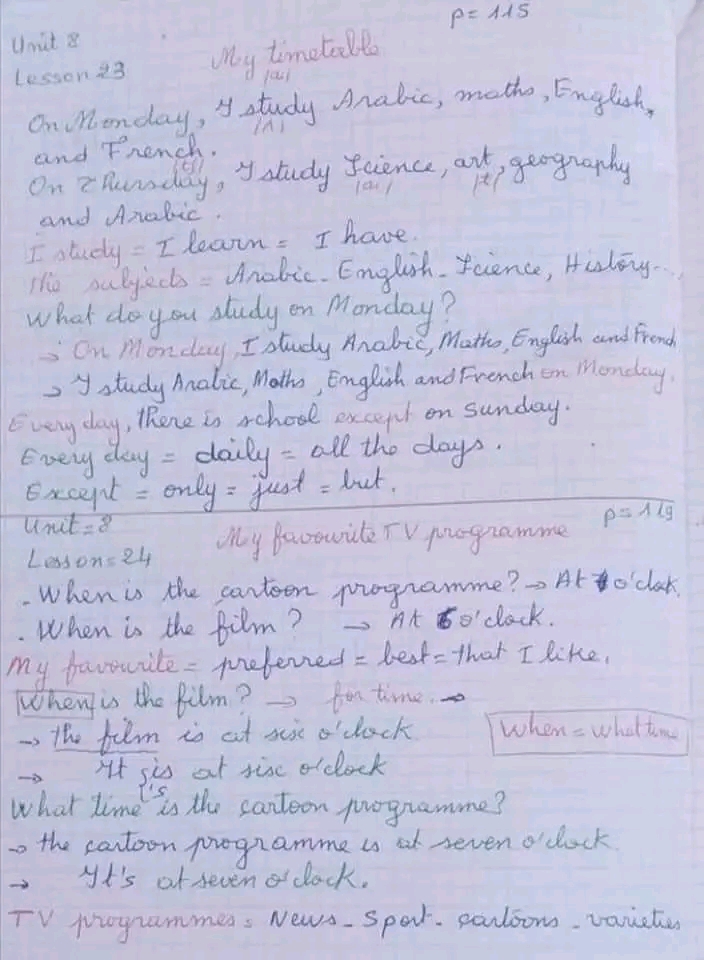 p= 115
Unit 8
Lesson 23
My timetable
/aɪ/
On Monday, I study Arabic, maths, English,
/ʌ/
and French.
/tʃ/
On Thursday, I study Science, art, geography
/aɪ/ /t/
and Arabic.
I study = I learn = I have.
The subjects = Arabic - English - Science, History...,
What do you study on Monday?
→ On Monday, I study Arabic, Maths, English and French
→ I study Arabic, Maths, English and French on Monday.
Every day, there is school except on Sunday.
Every day = daily = all the days.
Except = only = just = but.
Unit = 8
p= 119
Lesson = 24
My favourite TV programme
. When is the cartoon programme? → At 7 o'clock.
. When is the film? → At 6 o'clock.
My favourite = preferred = best = that I like.
When is the film? → for time. →
→ The film is at six o'clock
When = what time
→ It is at six o'clock
's
What time is the cartoon programme?
→ the cartoon programme is at seven o'clock
→ It's at seven o'clock.
TV programmes = News - Sport - cartoons - varieties